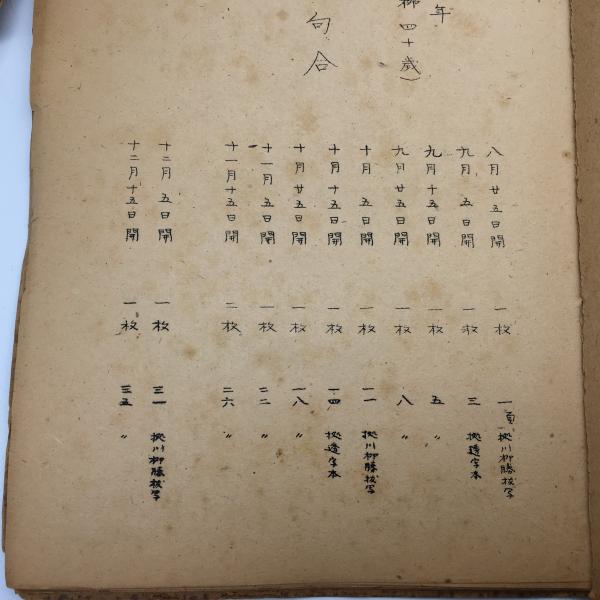 年
柳四十歳)
句合
八月廿五日開 一枚 一頁 拠川柳勝抜写
九月五日開 一枚 三 拠逵字本
九月十五日開 一枚 五 〃
九月廿五日開 一枚 八 〃
十月五日開 一枚 一一 拠川柳勝抜写
十月十五日開 一枚 一四 拠逵字本
十月廿五日開 一枚 一八 〃
十一月五日開 一枚 二二 〃
十一月十五日開 二枚 二六 〃
十二月五日開 一枚 三一 拠川柳勝抜写
十二月十五日開 一枚 三五 〃